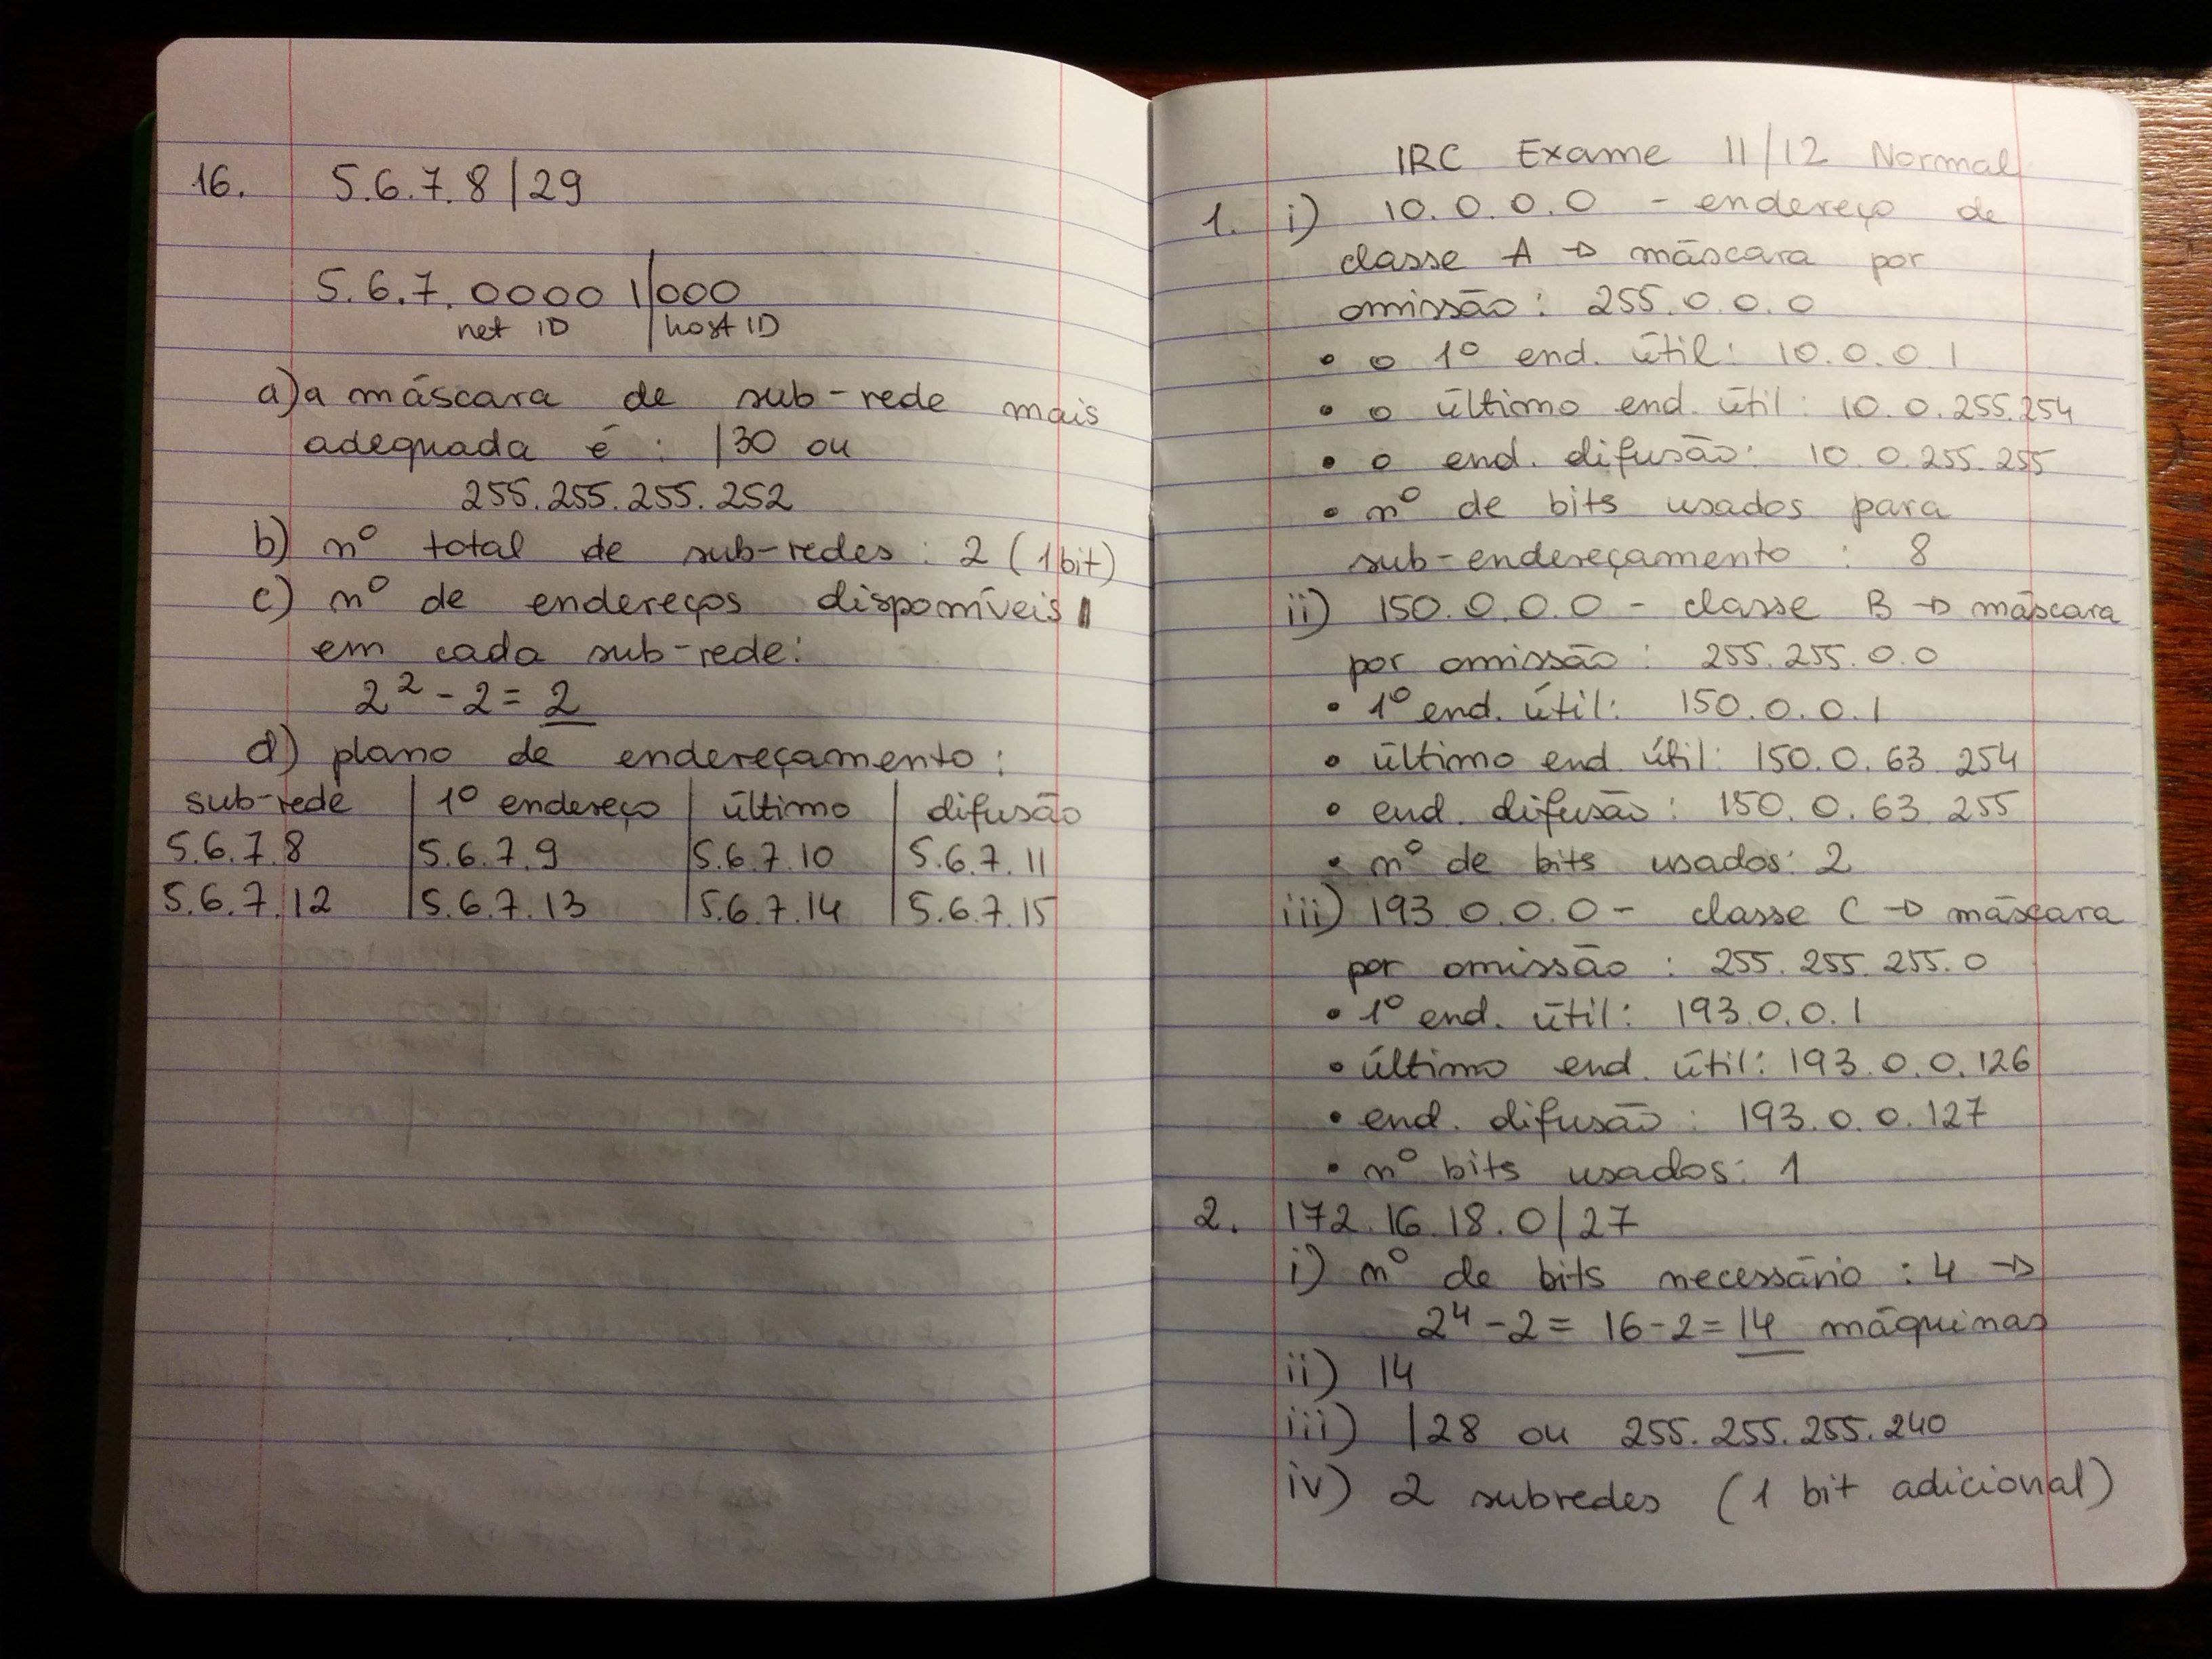 16. 5.6.7.8/29
5.6.7.0000 1|000
net ID | host ID
a) a máscara de sub-rede mais
adequada é : /30 ou
255.255.255.252
b) nº total de sub-redes : 2 (1 bit)
c) nº de endereços disponíveis
em cada sub-rede:
2² - 2 = 2
d) plano de endereçamento :
sub-rede | 1º endereço | último | difusão
5.6.7.8 | 5.6.7.9 | 5.6.7.10 | 5.6.7.11
5.6.7.12 | 5.6.7.13 | 5.6.7.14 | 5.6.7.15
IRC Exame 11/12 Normal
1. i) 10.0.0.0 - endereço de
classe A → máscara por
omissão : 255.0.0.0
• o 1º end. útil: 10.0.0.1
• o último end. útil: 10.0.255.254
• o end. difusão: 10.0.255.255
• nº de bits usados para
sub-endereçamento : 8
ii) 150.0.0.0 - classe B → máscara
por omissão : 255.255.0.0
• 1º end. útil: 150.0.0.1
• último end. útil: 150.0.63.254
• end. difusão : 150.0.63.255
• nº de bits usados: 2
iii) 193.0.0.0 - classe C → máscara
por omissão : 255.255.255.0
• 1º end. útil: 193.0.0.1
• último end. útil: 193.0.0.126
• end. difusão : 193.0.0.127
• nº bits usados: 1
2. 172.16.18.0/27
i) nº de bits necessário : 4 →
2⁴ - 2 = 16 - 2 = 14 máquinas
ii) 14
iii) /28 ou 255.255.255.240
iv) 2 subredes (1 bit adicional)